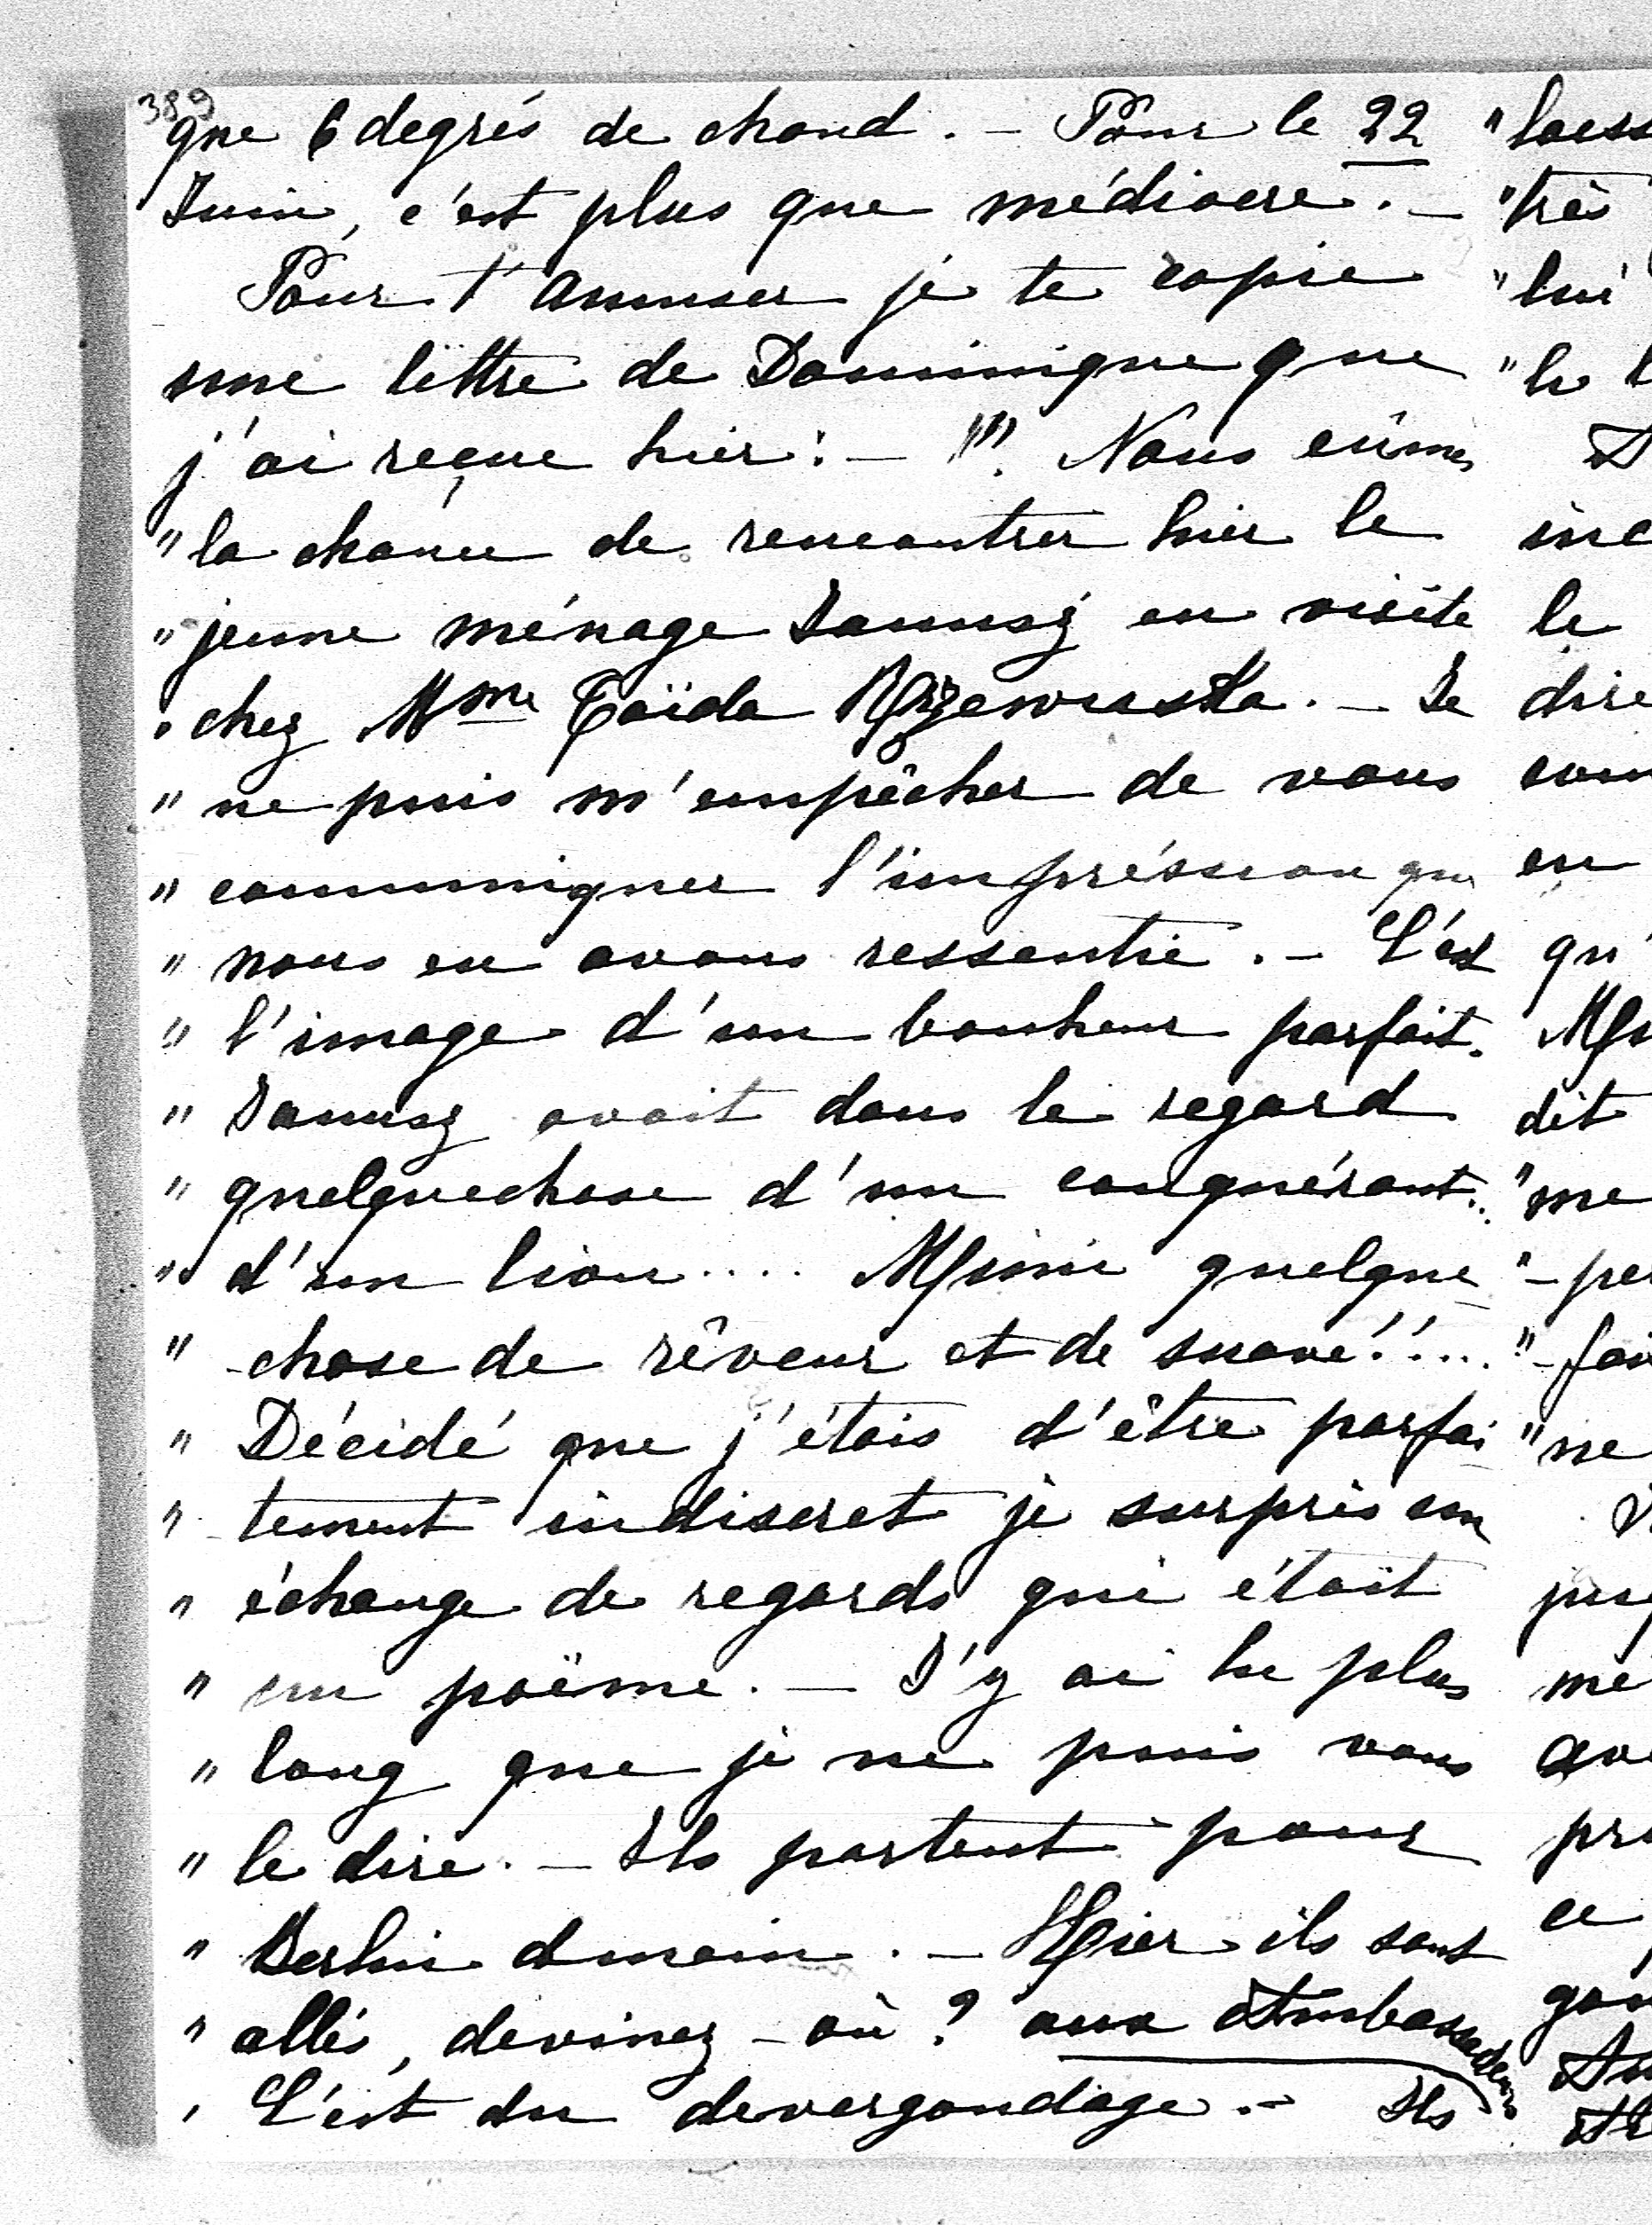 389
que 6 degrés de chaud. - Pour le 22
Juin, c'est plus que médiocre. -
Pour t'amuser je te copie
une lettre de Dominique que
j'ai reçue hier: - "" Nous eûmes
" la chance de rencontrer hier le
" jeune ménage Janusz en visite
" chez Mme Taïda Rzewuska. - Je
" ne puis m'empêcher de vous
" communiquer l'impréssion que
" nous en avons ressentie. - C'est
" l'image d'un bonheur parfait.
" Janusz avait dans le regard
" quelquechose d'un conquérant..
" d'un lion.... Mimi quelque
" -chose de rêveur et de suave!!...
" Décidé que j'étais d'être parfai-
" tement indiscret je surpris un
" échange de regards qui était
" un poëme. - J'y ai lu plus
" long que je ne puis vous
" le dire. - Ils partent pour
" Berlin dmain. - Hier ils sont
" allés, devinez - où? aux Ambassadeurs
" C'est du devergondage. - Ils
"laess
"très
"lui
"le
inc
le
dire
com
en
qu'
Mi
dit
"me
"-per
"-fai
"ne
jusq
mê
ave
pri
ce